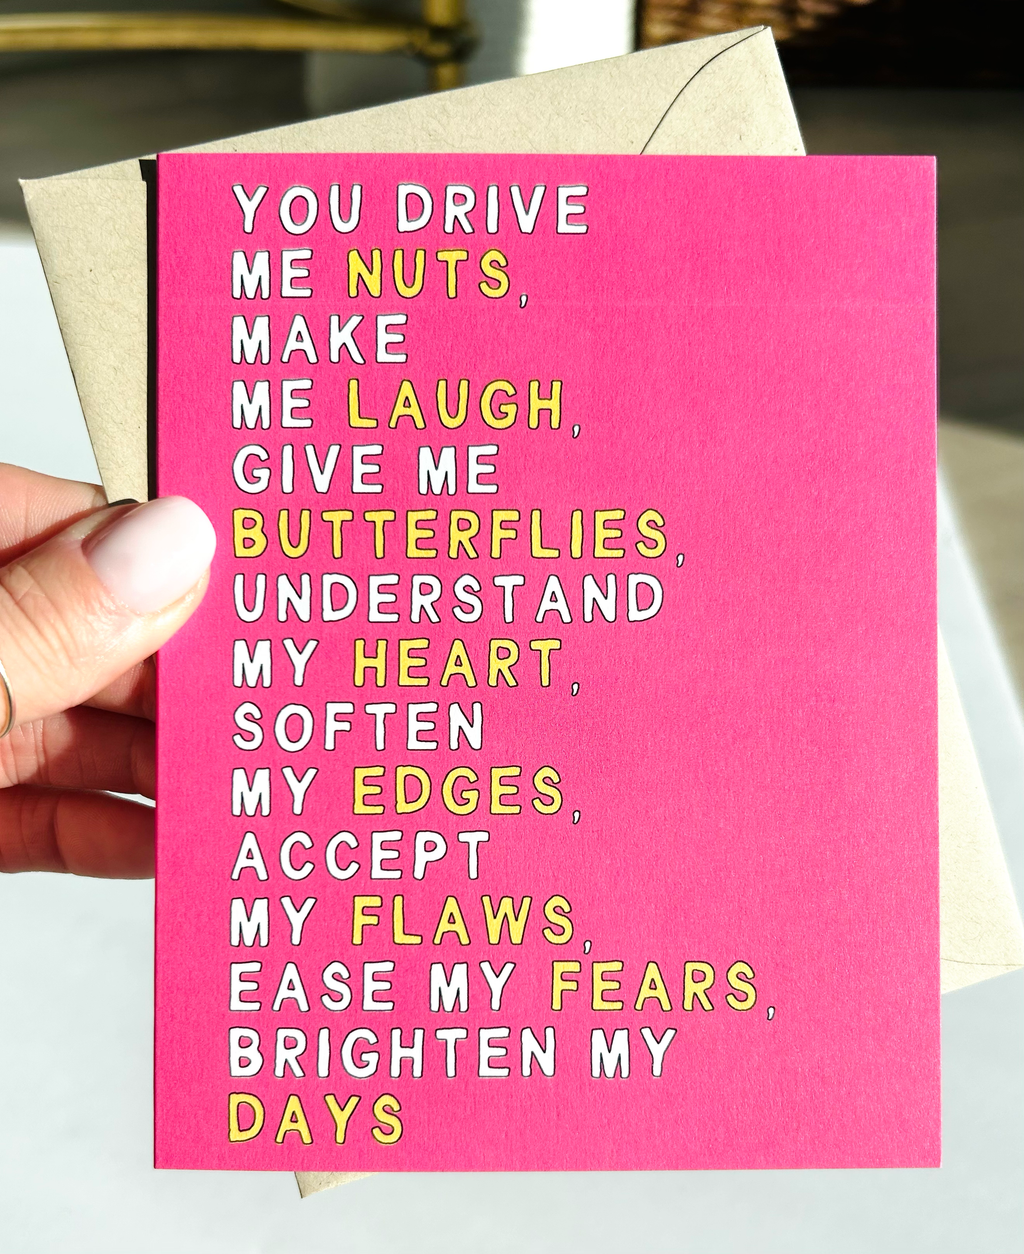 YOU DRIVE
ME NUTS,
MAKE
ME LAUGH,
GIVE ME
BUTTERFLIES,
UNDERSTAND
MY HEART,
SOFTEN
MY EDGES,
ACCEPT
MY FLAWS,
EASE MY FEARS,
BRIGHTEN MY
DAYS